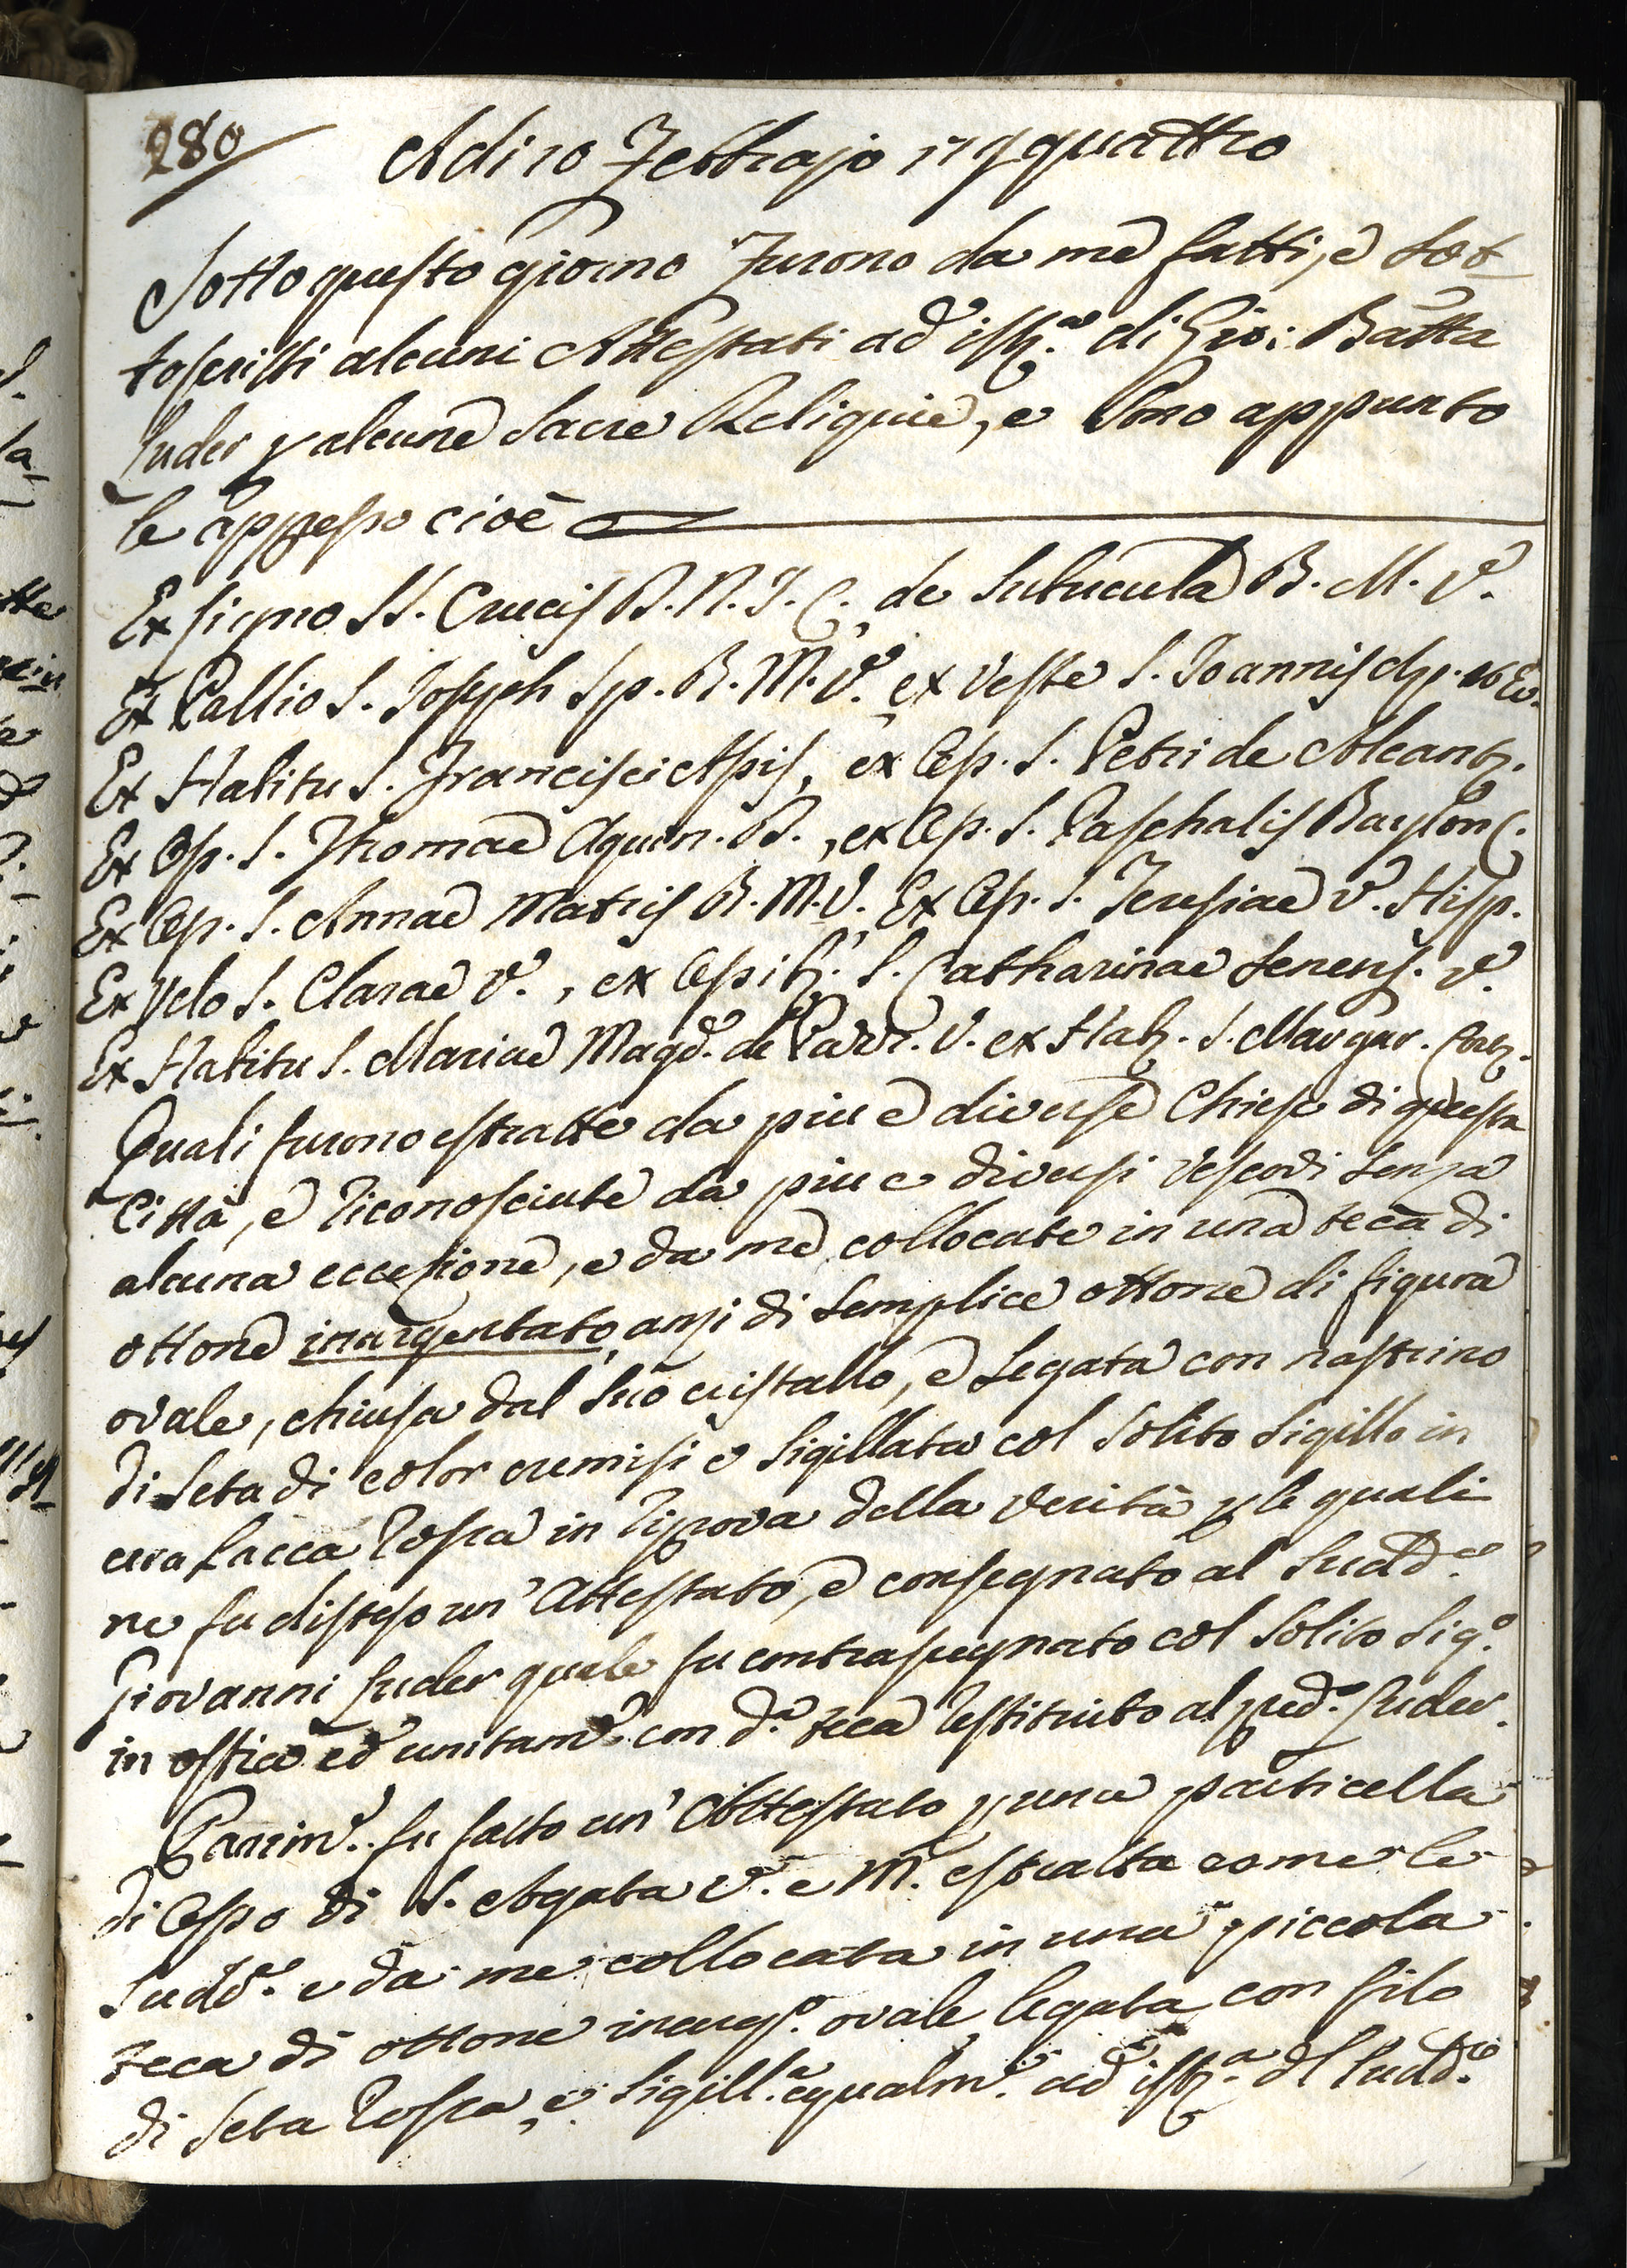 280
Adi 10 Febbrajo 179quattro
Sotto questo giorno furono da me fatti, e sot=
toscritti alcuni Attestati ad istz.ª di Gio: Batta
Suder p alcune Sacre Reliquie, e sono appunto
le appresso cioè
Ex signo SS. Crucis D. N. J. C., de Subucula B. M. V.
Ex Pallio S. Joseph Sp. B. M. V., ex veste S. Joannis Ap. et Ev.
Ex Habitu S. Francisci Assis., ex Osp. S. Petri de Alcant.
Ex Osp. S. Thomae Aquin. D., ex Osp. S. Paschalis Baylon C.
Ex Osp. S. Annae Matris B. M. V. Ex Osp. S. Teresiae V. Hisp.
Ex Velo S. Clarae V., ex Ospib. S. Catharinae Senens. V.
Ex Habitu S. Mariae Magd. de Pazz. V. ex Hab. S. Margar. Cort.
Quali furono estratte da piu e diverse Chiese di questa
Città, e riconosciute da piu e diversi Vescovi senza
alcuna eccesione, e da me collocate in una teca di
ottone inargentato, anzi di semplice ottone di figura
ovale, chiusa dal suo cristallo, e legata con nastrino
di seta di color cremisi e sigillata col solito sigillo in
cera lacca rossa in riprova della verità p le quali
ne fu disteso un' Attestato, e consegnato al Sudd.º
Giovanni Suder quale fu contrasegnato col solito sig.º
in ostia ed unitam.e con d.ª teca restituito al pred.º Suder.
Parim.e fu fatto un' Attestato p una particella
di Osso di S. Agata V. e M. estratta come le
sudd.e e da me collocata in una piccola
teca di ottone inarg.º ovale legata con filo
di seta rossa, e sigill.ª egualm.e ad istz.ª dl Sudd.º